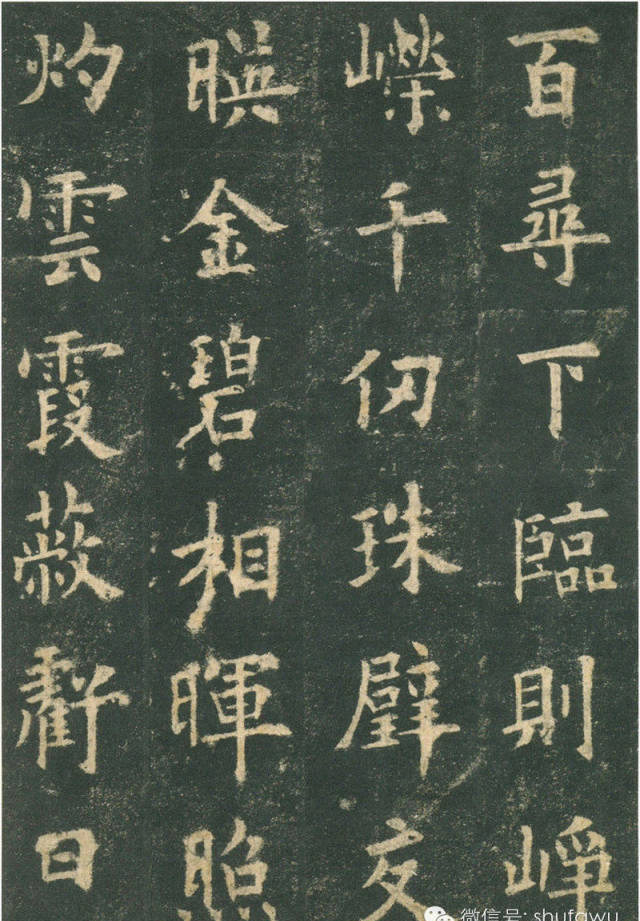 百尋下臨則崢
嶸千仞珠璧交
暎金碧相暉照
灼雲霞蔽虧日
微信号: shufawu